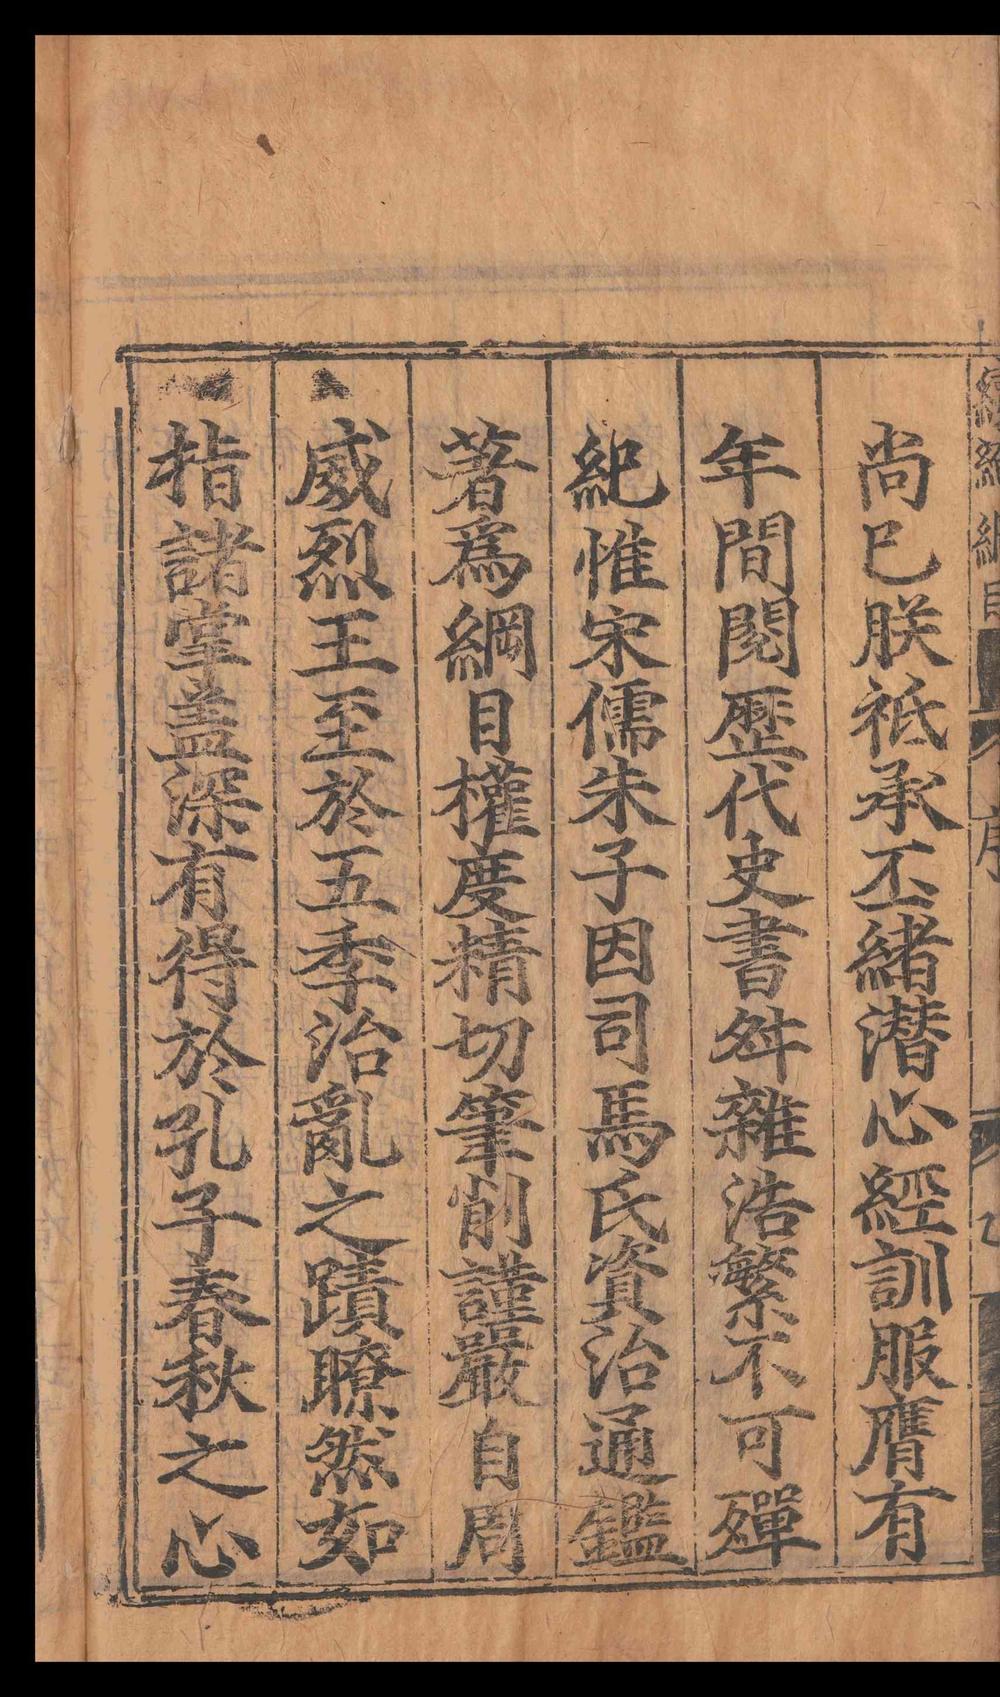 尚已朕祗承丕緒潛心經訓服膺有
年間閱歷代史書舛雜浩繁不可殫
紀惟宋儒朱子因司馬氏資治通鑑
著爲綱目權度精切筆削謹嚴自周
威烈王至於五季治亂之蹟瞭然如
指諸掌盖深有得於孔子春秋之心